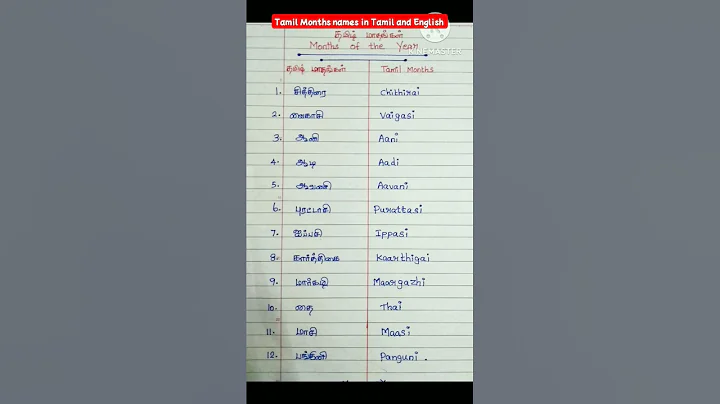 Tamil Months names in Tamil and English
தமிழ் மாதங்கள்
Months of the Year
தமிழ் மாதங்கள் Tamil Months
1. சித்திரை Chithirai
2. வைகாசி Vaigasi
3. ஆனி Aani
4. ஆடி Aadi
5. ஆவணி Aavani
6. புரட்டாசி Purattasi
7. ஐப்பசி Ippasi
8. கார்த்திகை Kaarthigai
9. மார்கழி Maargazhi
10. தை Thai
11. மாசி Maasi
12. பங்குனி Panguni .